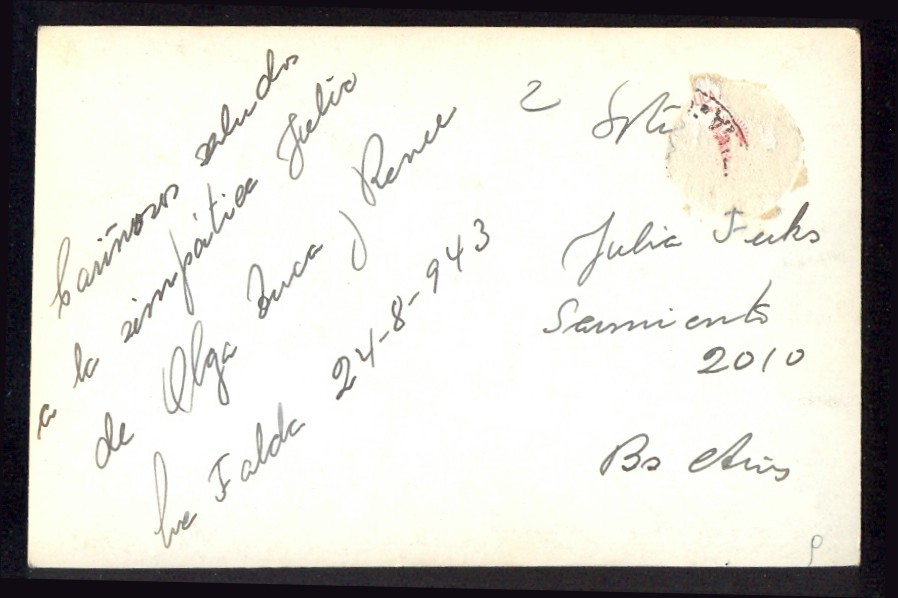 Cariñosos saludos
a la simpática Julia
de Olga Zuca y Renee
La Falda 24-8-943
2
Julia Fuks
Sarmiento
2010
Bs Aires